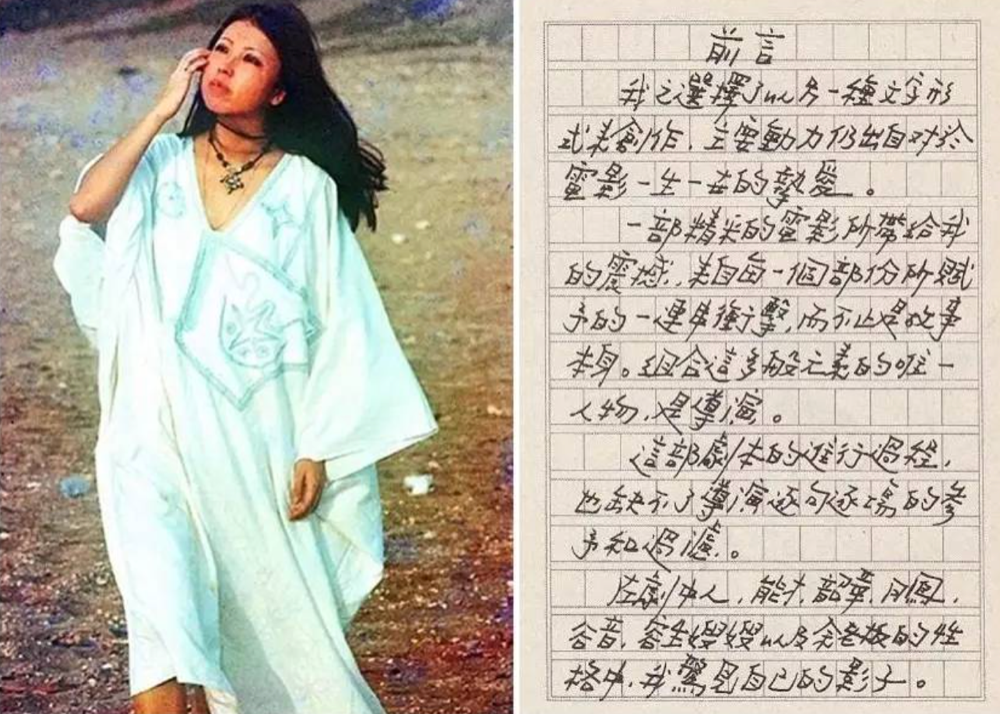 前言
我之選擇了以另一種文字形
式來創作，主要動力仍出自对於
電影一生一世的摯愛。
一部精采的電影所帶給我
的震撼，來自每一個部份所賦
予的一連串衝擊，而不止是故事
本身。組合這多般元素的唯一
人物，是導演。
這部劇本的進行過程，
也缺不了導演逐句逐場的參
予和過濾。
在劇中人，能才，韶華，月鳳，
谷音，容生嫂嫂以及余老板的性
格中，我驚見自已的影子。